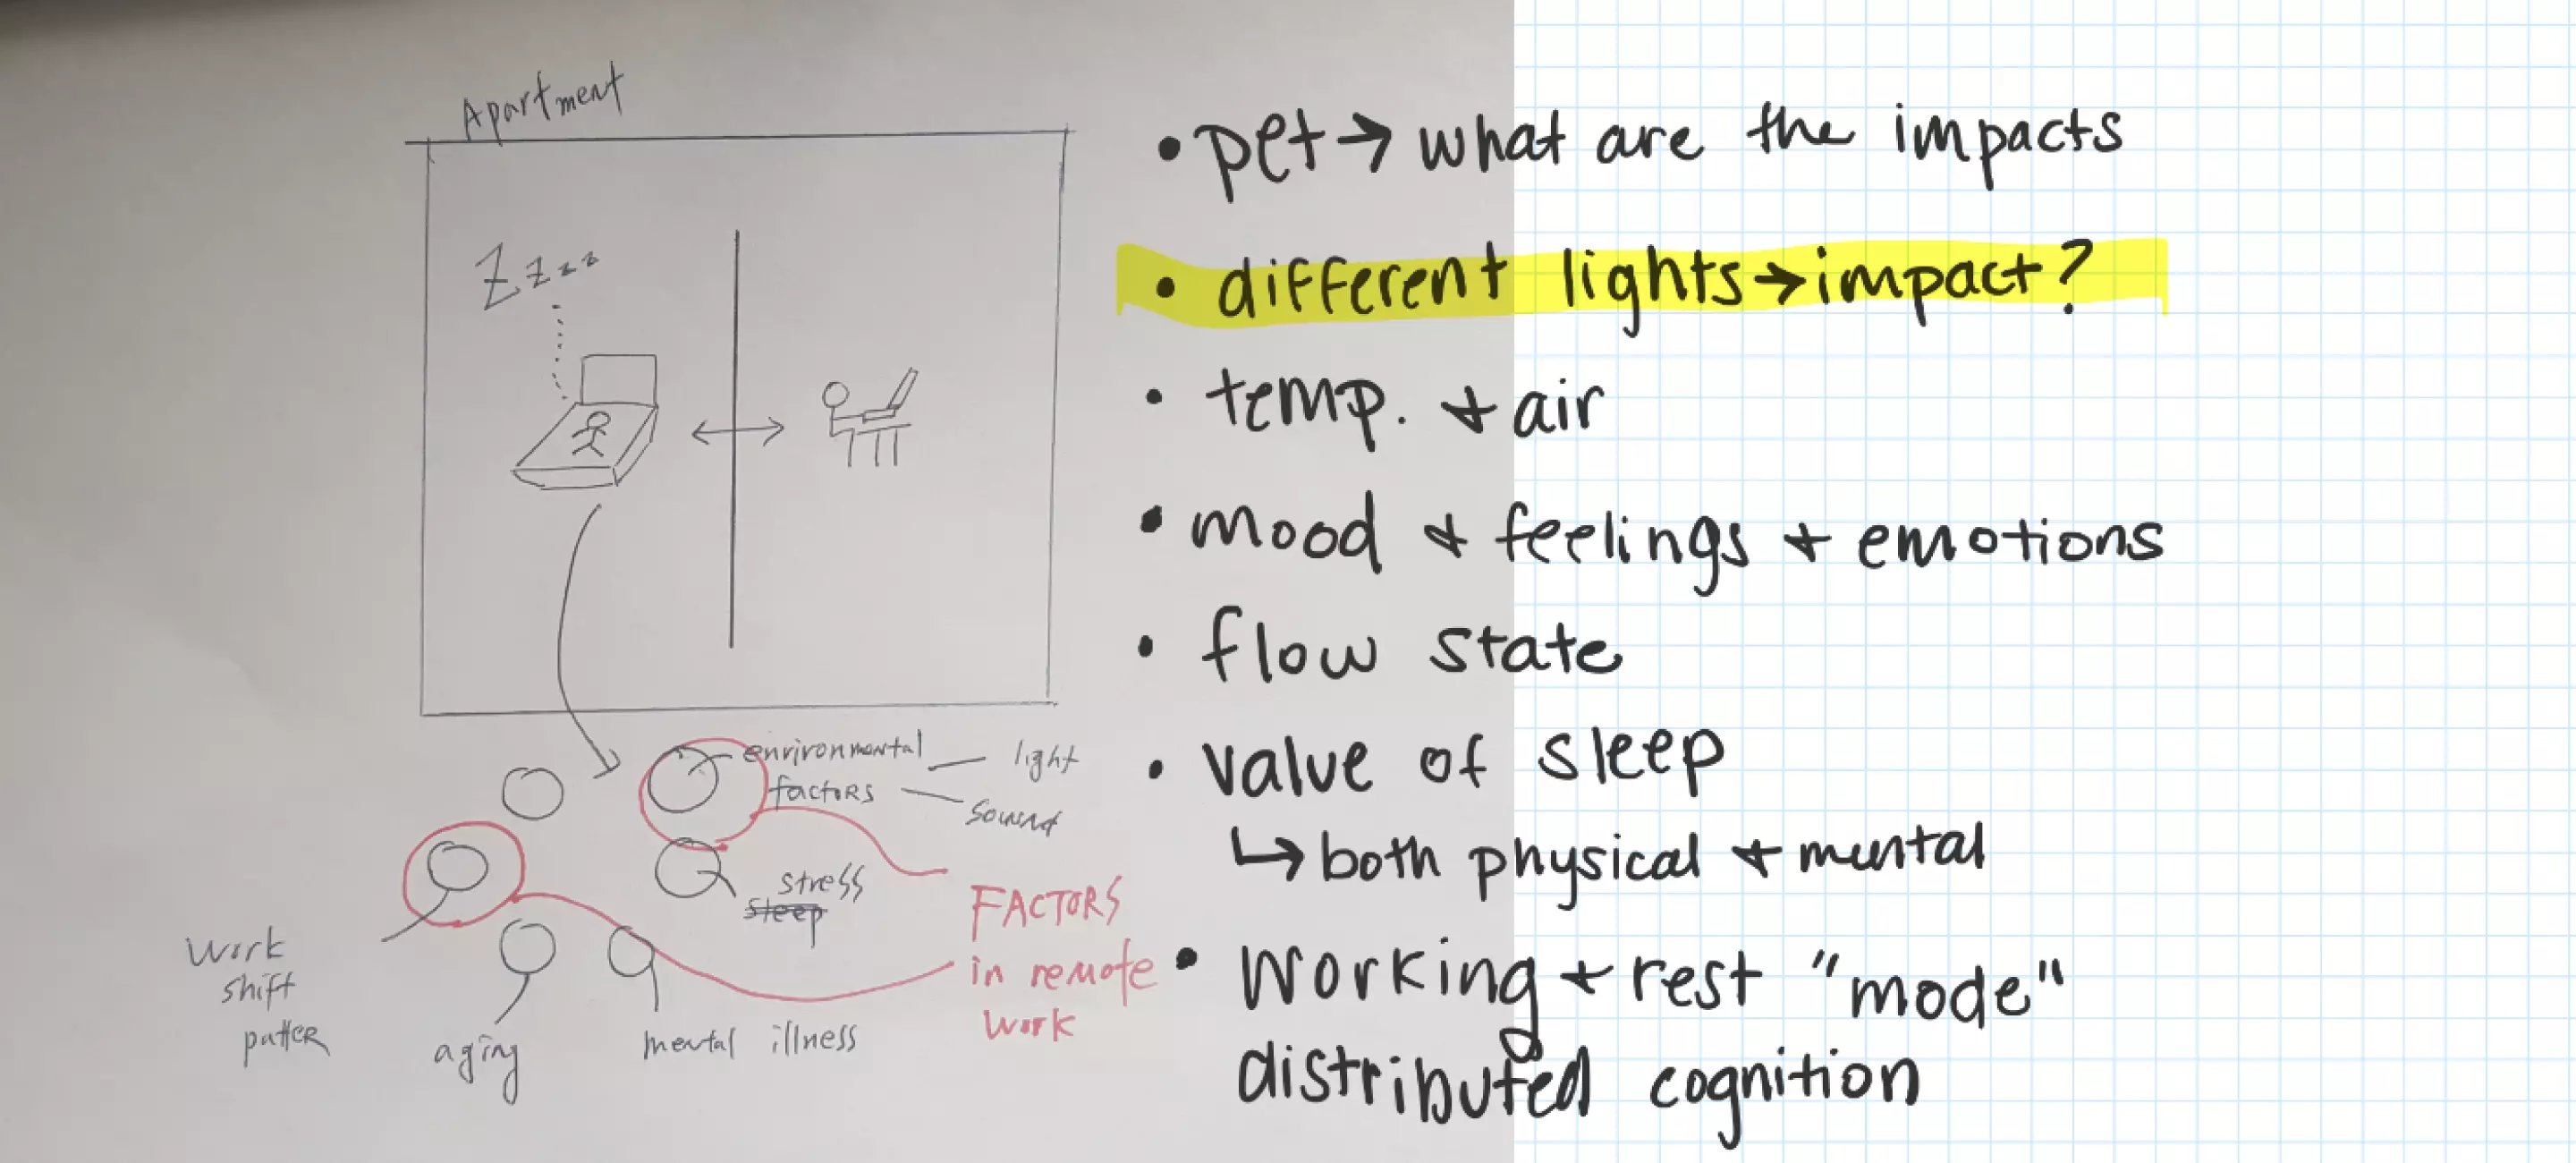 Apartment
Zzzz
environmental
factors
light
sound
stress
sleep
FACTORS
in remote
work
Work
shift
patter
aging
mental illness
• pet → what are the impacts
• different lights → impact?
• temp. + air
• mood + feelings + emotions
• flow state
• value of sleep
↳ both physical + mental
• working + rest "mode"
distributed cognition